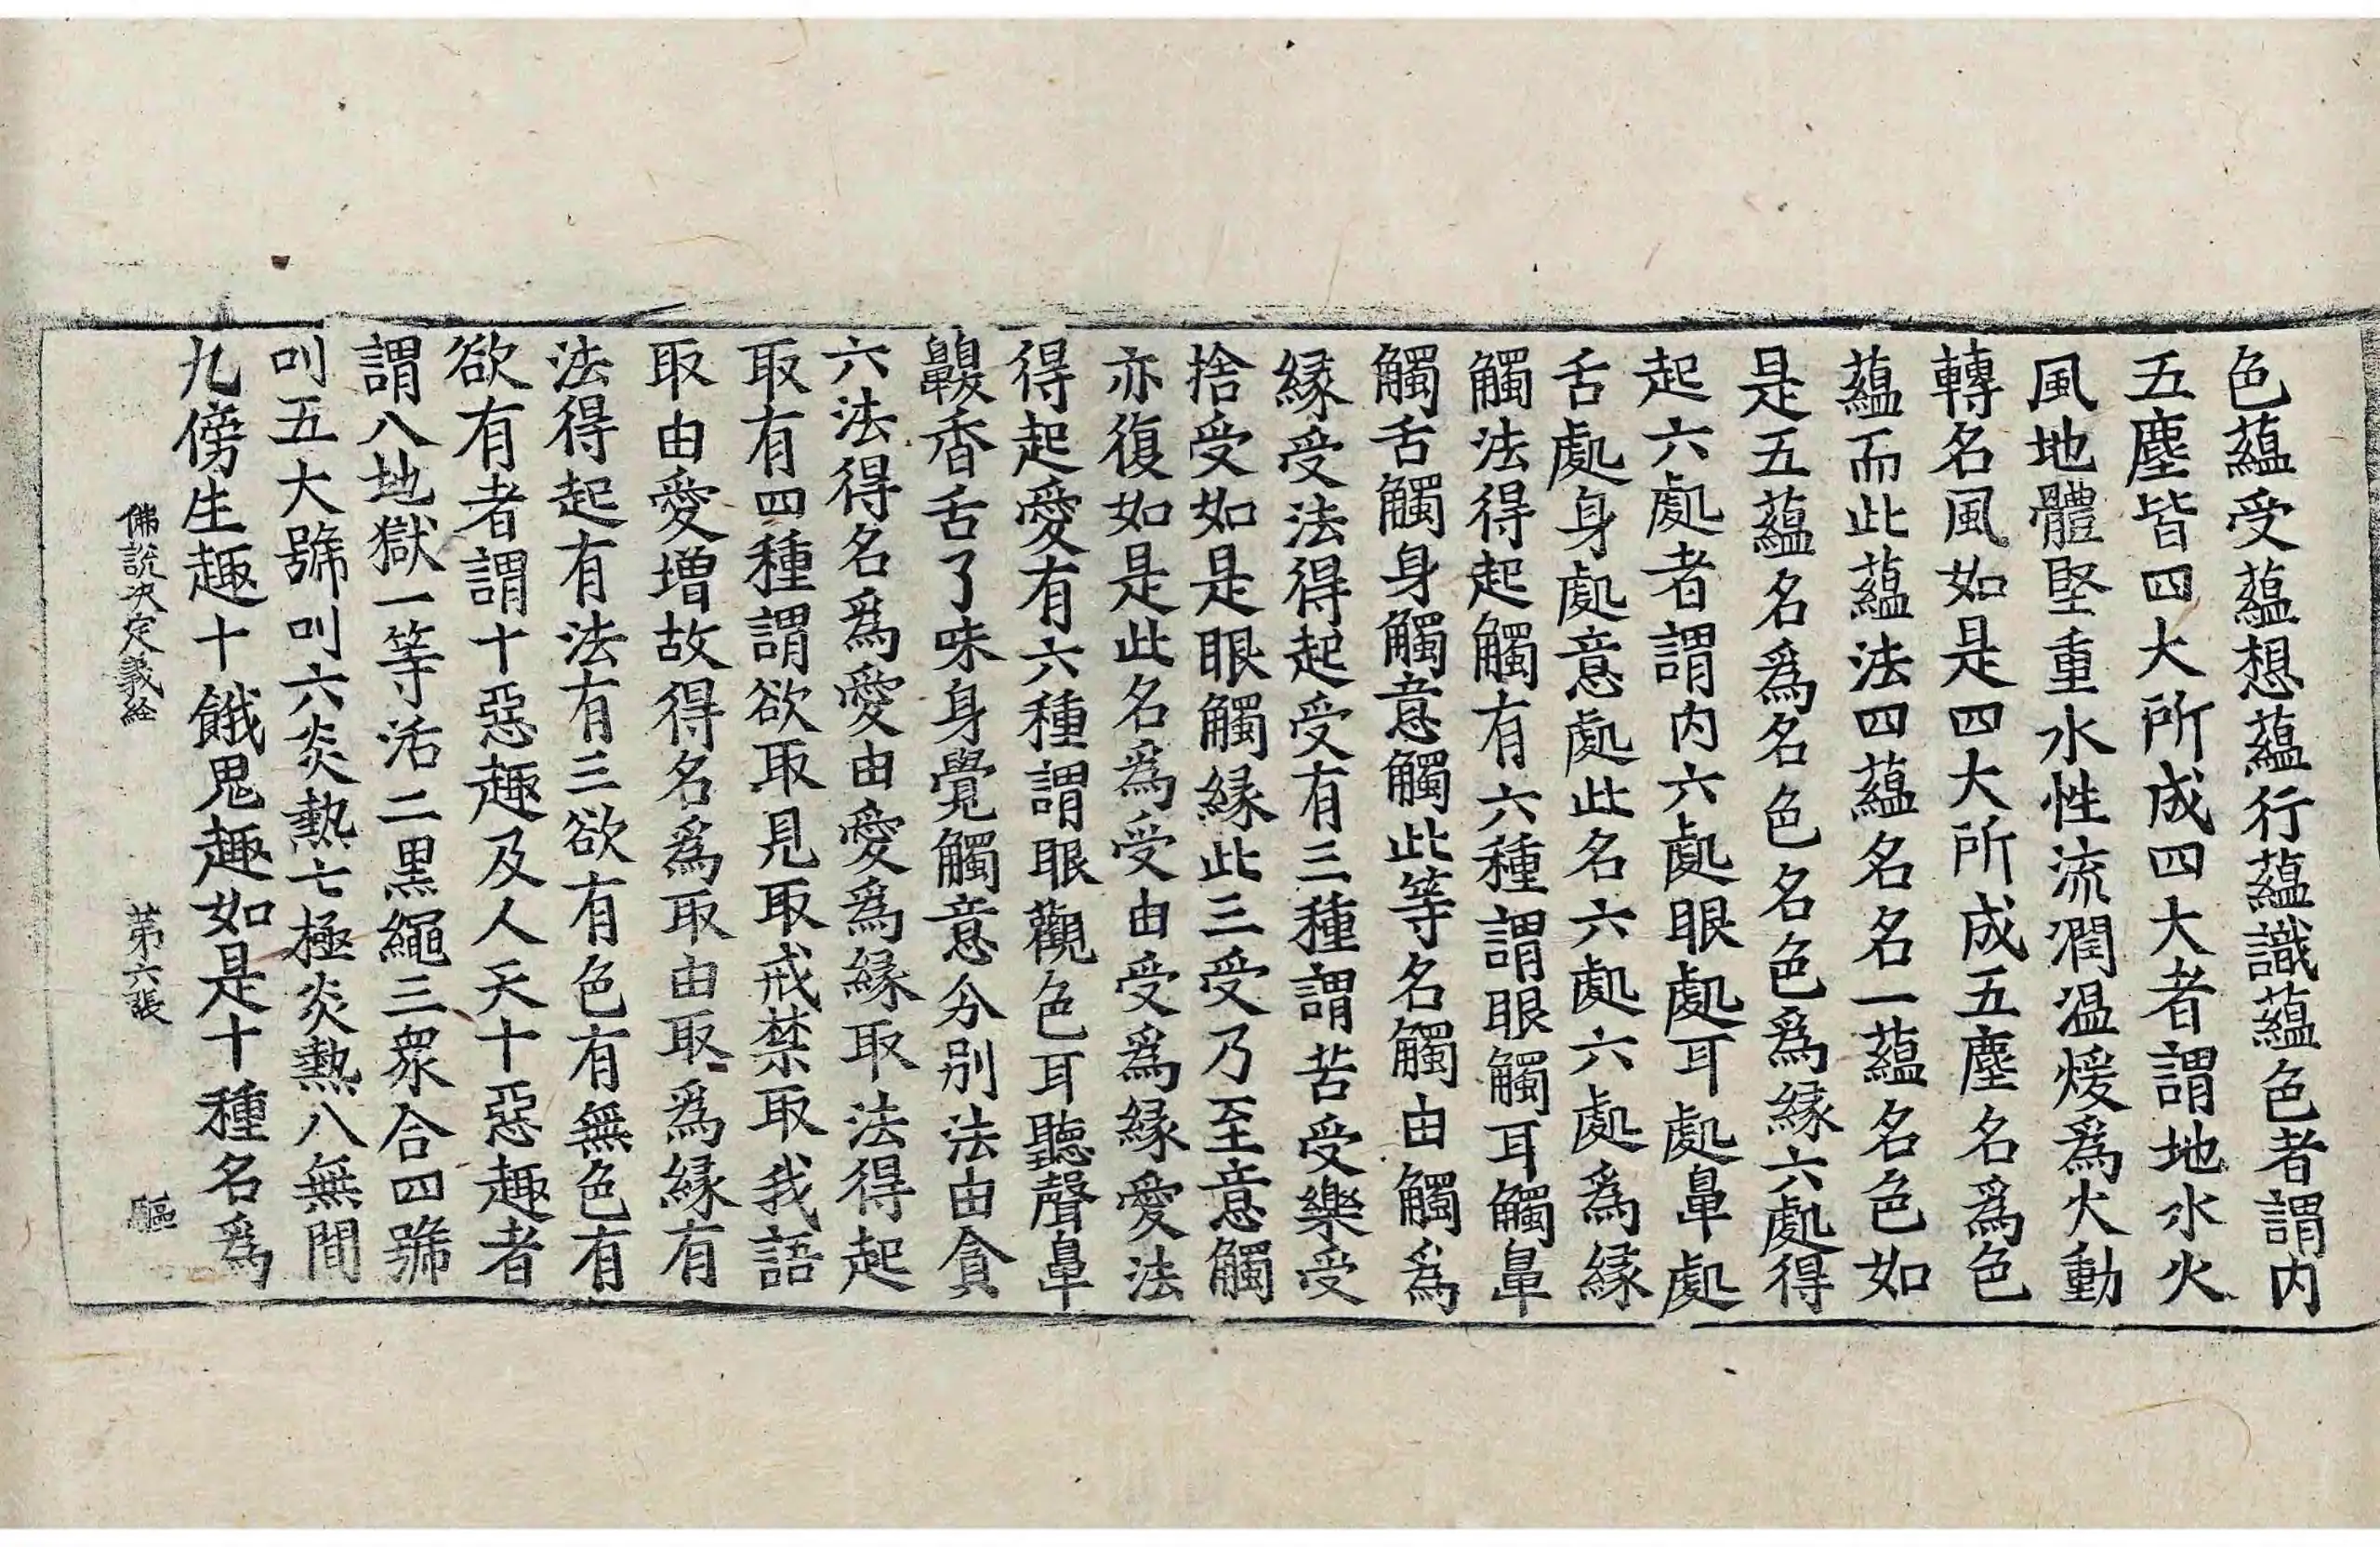 色蘊受蘊想蘊行蘊識蘊色者謂内
五塵皆四大所成四大者謂地水火
風地體堅重水性流潤温煖爲火動
轉名風如是四大所成五塵名爲色
蘊而此蘊法四蘊名名一蘊名色如
是五蘊名爲名色名色爲縁六處得
起六處者謂内六處眼處耳處鼻處
舌處身處意處此名六處六處爲縁
觸法得起觸有六種謂眼觸耳觸鼻
觸舌觸身觸意觸此等名觸由觸爲
縁受法得起受有三種謂苦受樂受
捨受如是眼觸縁此三受乃至意觸
亦復如是此名爲受由受爲縁愛法
得起愛有六種謂眼觀色耳聽聲鼻
齅香舌了味身覺觸意分别法由貪
六法得名爲愛由愛爲縁取法得起
取有四種謂欲取見取戒禁取我語
取由愛增故得名爲取由取爲縁有
法得起有法有三欲有色有無色有
欲有者謂十惡趣及人天十惡趣者
謂八地獄一等活二黒繩三衆合四號
叫五大號叫六炎熱七極炎熱八無間
九傍生趣十餓鬼趣如是十種名爲
佛説決定義経 第六張 驅